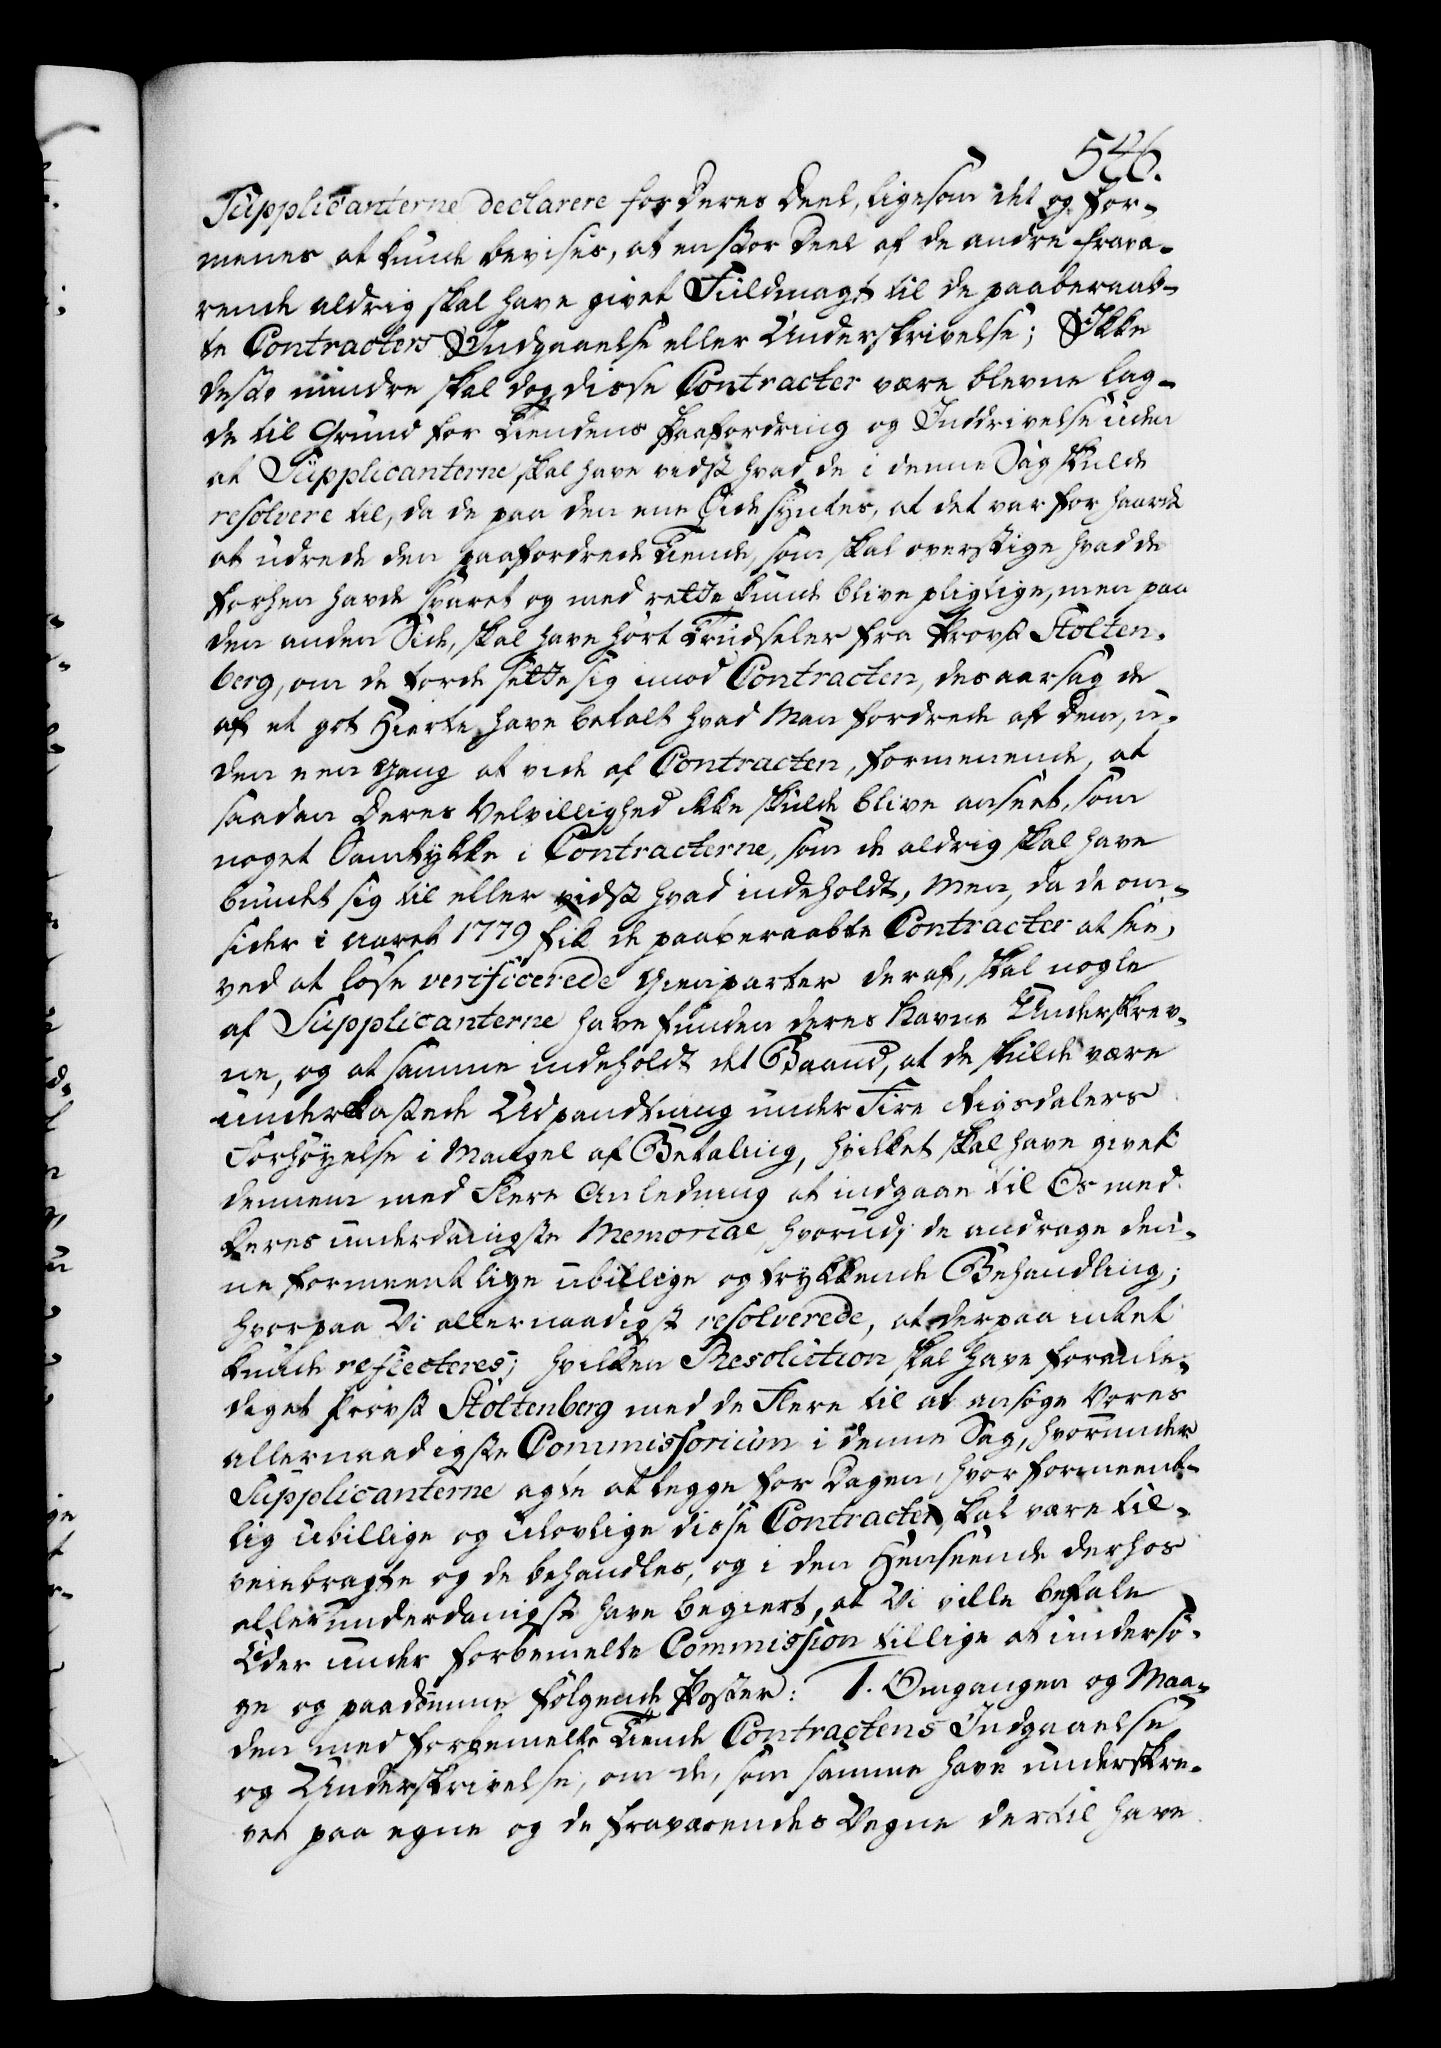 546.
Supplicanterne declarere for deres Deel, ligesom det og for-
menes at kunde bevises, at en stor Deel af de andre fravæ-
rende aldrig skal have givet Fuldmagt til de paaberaab-
te Contracters Indgaaelse eller Underskrivelse; Ikke
desto mindre skal dog disse Contracter være blevne lag-
de til Grund for Tiendens Paafordring og Inddrivelse uden
at Supplicanterne skal have vidst hvad de i denne Sag skulde
resolvere til, da de paa den ene Side syntes, at det var for haardt
at udrede den paafordrede Tiende, som skal overstige hvad de
forhen havde svaret og med rette kunde blive pligtige, men paa
den anden Side, skal have hørt Trudseler fra Provst Stolten-
berg, om de torde sette sig imod Contracten, des aarsag de
af et got Hierte have betalt hvad Man fordrede af dem, u-
den een Gang at vide af Contracten, formenende, at
saadan deres Velvillighed ikke skulde blive anseet, som
noget Samtykke i Contracterne, som de aldrig skal have
bundet sig til eller vidst hvad indeholdt, Men, da de om-
sider i Aaret 1779 fik de paaberaabte Contracter at see,
ved at løse verificerede Gienparter deraf, skal nogle
af Supplicanterne have funden deres Navne Underskrev-
ne, og at samme indeholdt det Baand, at de skulde være
underkastede Udpandtning under Fire Rigsdalers
Forhøyelse i Mangel af Betaling, hvilket skal have givet
dennem med flere Anledning at indgaae til Os med
deres underdanigste Memorial, hvorudj de andrage den-
ne formeentlige ubillige og trykkende Behandling;
hvorpaa Vi allernaadigst resolverede, at derpaa intet
kunde reflecteres; hvilken Resolution skal have foranle-
diget Provst Stoltenberg med de Flere til at ansøge Vores
allernaadigste Commissorium i denne Sag, hvorunder
Supplicanterne agte at legge for Dagen, hvor formeent-
lig ubillige og ulovlige disse Contracter skal være til-
veiebragte og de behandles, og i den Henseende derhos
allerunderdanigst have begiert, at Vi ville befale
Eder under forbemelte Commission tillige at undersø-
ge og paadømme følgende Poster: 1. Omgangen og Maa-
den med forbemelte Tiende Contractens Indgaaelse
og Underskrivelse, om de, som samme have underskre-
vet paa egne og de fraværendes Vegne dertil have